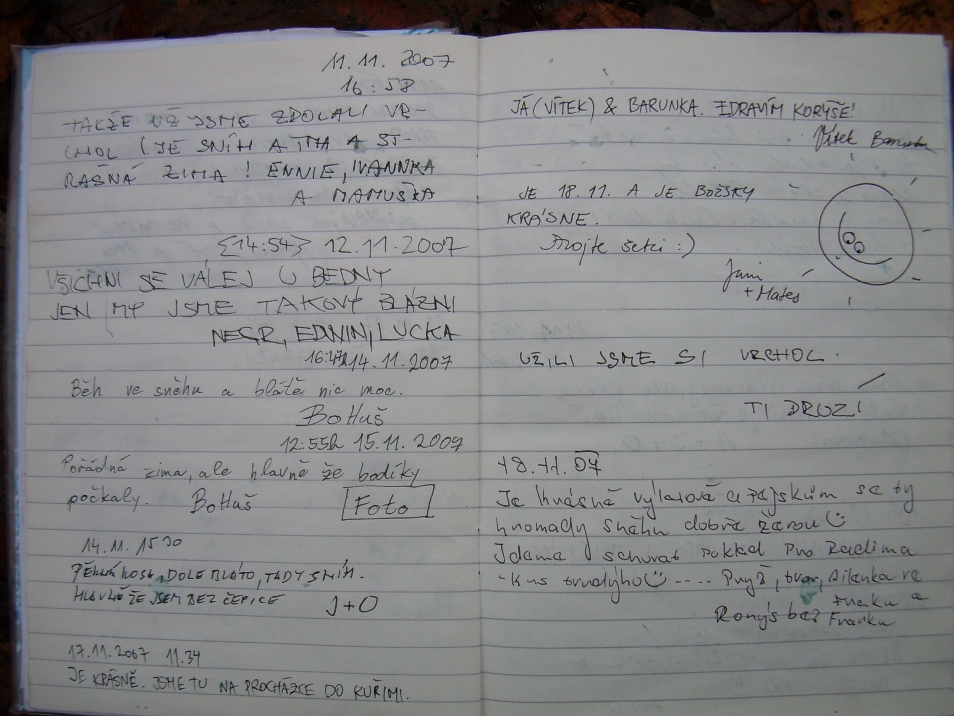 11.11. 2007
16:58
TAKŽE UŽ JSME ZDOLALI VR-
CHOL (JE SNÍH A TMA A ST-
RAŠNÁ ZIMA! ENNIE, IVANNKA
A MAMUŠKA
{14:54} 12.11.2007
VŠICHNI SE VÁLEJ U BEDNY
JEN MY JSME TAKOVÝ BLÁZNI
NEGR, EDWIN, LUCKA
14.11.2007
Běh ve sněhu a blátě nic moc.
BoHuš
12:55h 15.11.2007
Pořádná zima, ale hlavně že bodíky
počkaly. BoHuš Foto
14.11. 1530
PĚKNÁ KOSA, DOLE BLÁTO, TADY SNÍH.
HLAVNĚ ŽE JSEM BEZ ČEPICE J+O
17.11.2007 11.34
JE KRÁSNĚ. JSME TU NA PROCHÁZCE DO KUŘIMI.
JÁ (VÍTEK) & BARUNKA. ZDRAVÍM KORÝŠE!
Vítek
JE 18.11. A JE BOŽSKY
KRÁSNE.
:)
+ Mates
UŽILI JSME SI VRCHOL.
TI DRUZÍ
18.11.07
Je krásně
hromady sněhu dobře žerou
Jdeme schovat poklad pro Radima
- kus tvrdýho
Franku a
bez Franku